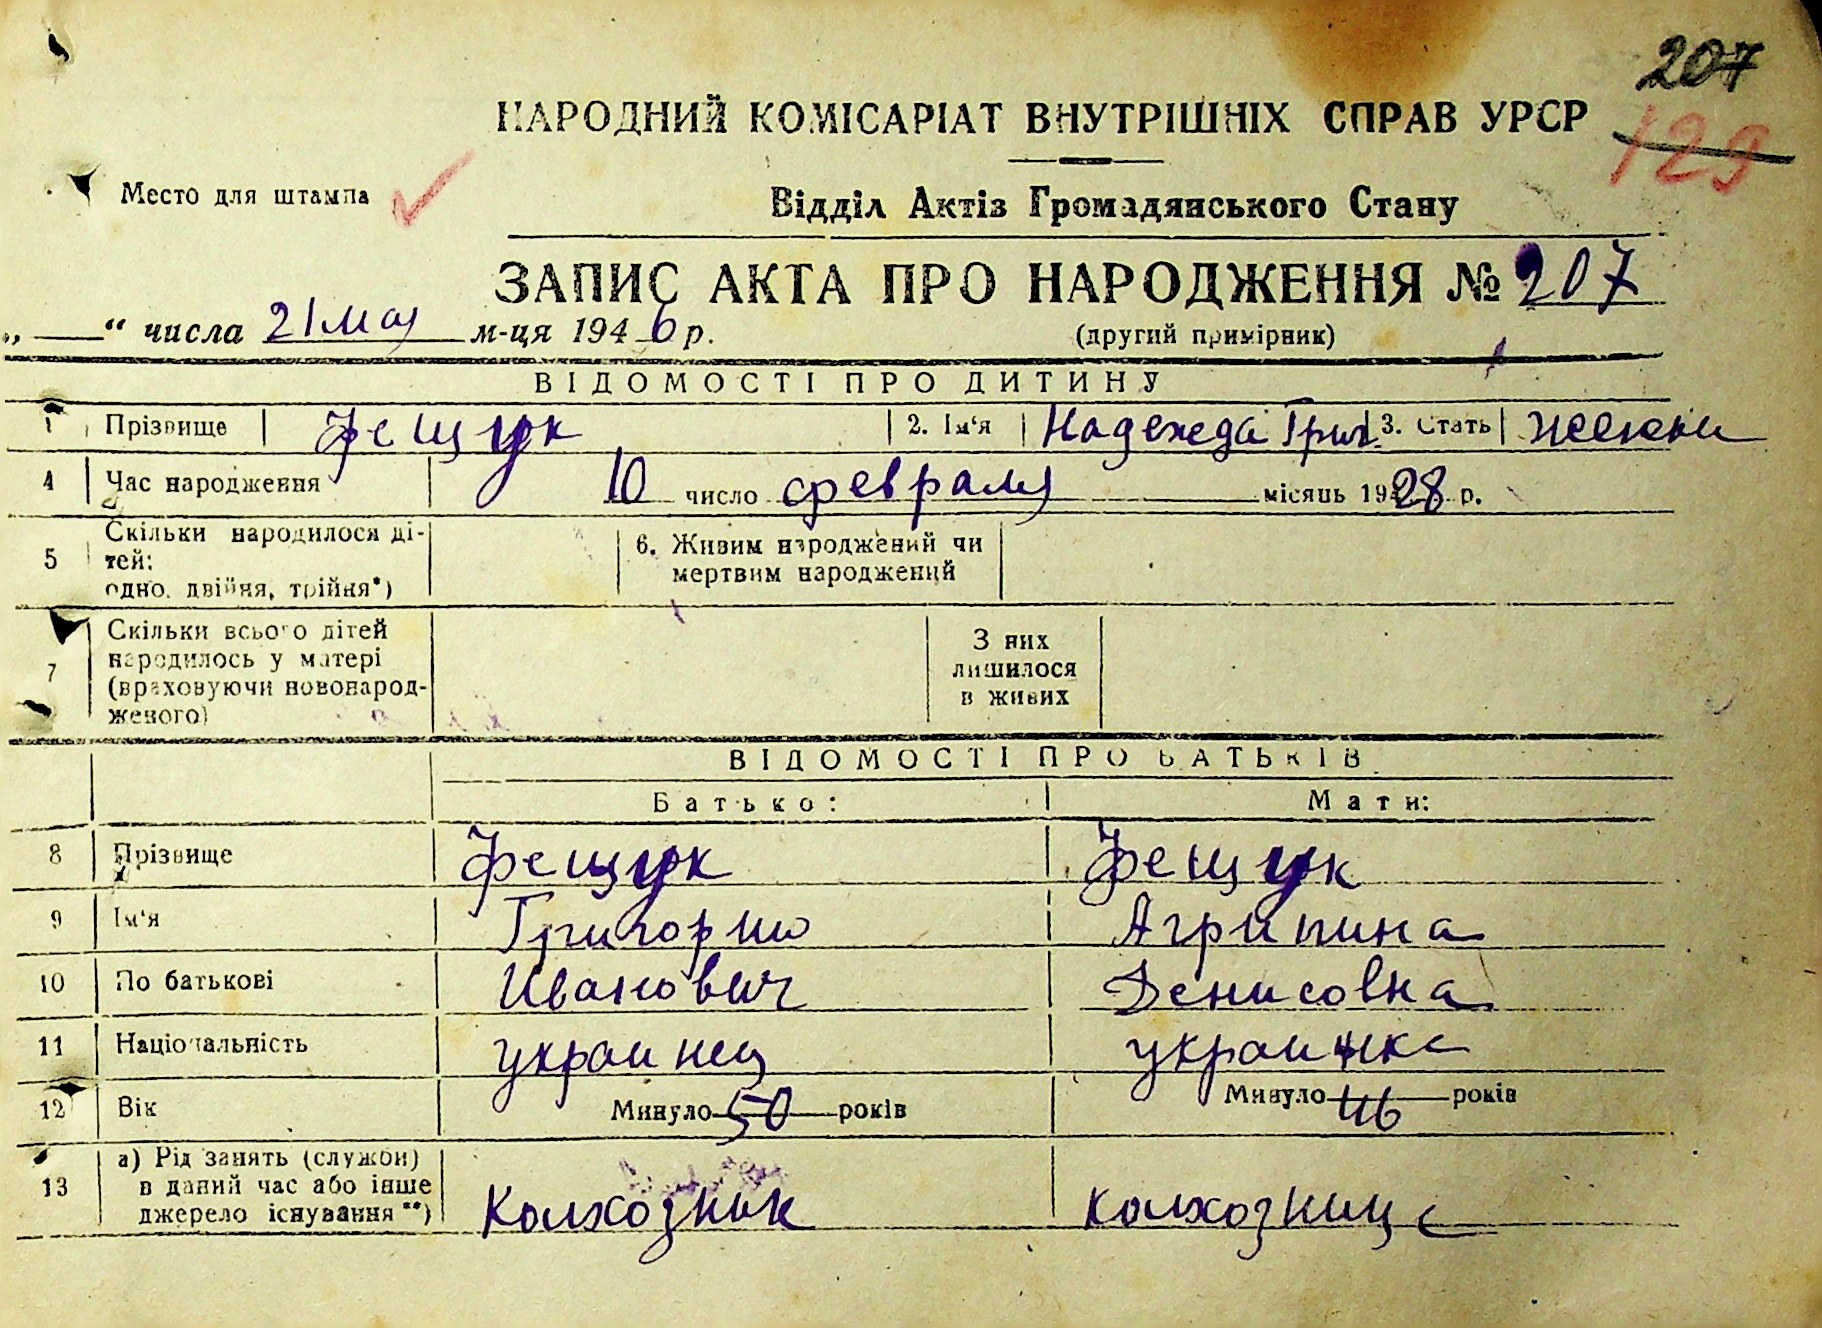 207
НАРОДНИЙ КОМІСАРІАТ ВНУТРІШНІХ СПРАВ УРСР
129
Место для штампа
Відділ Актів Громадянського Стану
ЗАПИС АКТА ПРО НАРОДЖЕННЯ № 207
„ “ числа 21 мая м-ця 1946 р.
(другий примірник)
ВІДОМОСТІ ПРО ДИТИНУ
1 Прізвище Фещук 2. Ім‘я Надежда Григ. 3. Стать женски
4 Час народження 10 число февраля місяць 1928 р.
5 Скільки народилося ді-
тей:
одно, двійня, трійня*)
6. Живим народжений чи
мертвим народжений
7 Скільки всього дітей
народилось у матері
(враховуючи новонарод-
женого)
З них
лишилося
в живих
ВІДОМОСТІ ПРО БАТЬКІВ
Батько: Мати:
8 Прізвище Фещук Фещук
9 Ім‘я Григорий Агрипина
10 По батькові Иванович Денисовна
11 Національність украинец украинка
12 Вік Минуло 50 років Минуло 46 років
13 а) Рід занять (служби)
в даний час або інше
джерело існування**)
Колхозник колхозница